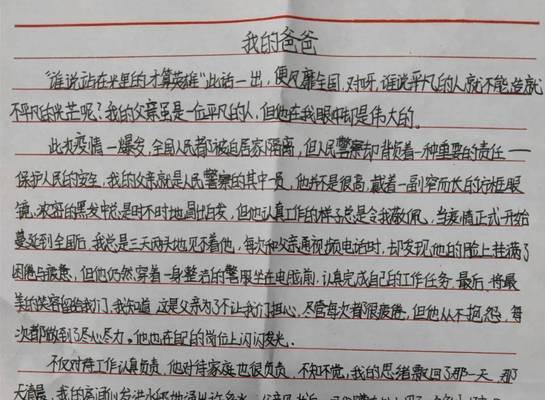 我的爸爸
“谁说站在光里的才算英雄”此话一出，便风靡全国，对呀，谁说平凡的人就不能造就
不平凡的光芒呢？我的父亲虽是一位平凡的人，但他在我眼中却是伟大的。
此次疫情一爆发，全国人民都被迫居家隔离，但人民警察却背负着一种重要的责任——
保护人民的安全，我的父亲就是人民警察的其中一员，他并不是很高，戴着一副窄而长的方框眼
镜，浓密的黑发中总是时不时地冒出白发，但他认真工作的样子总是令我敬佩、当疫情正式开始
蔓延到全国后，我总是三天两头地见不着他，每次和父亲通视频电话时，却发现他的脸上挂满了
困倦与疲惫，但他仍然穿着一身整洁的警服坐在电脑前，认真完成自己的工作任务，最后，将最
美的笑容留给我们，我知道，这是父亲为了不让我们担心，尽管每次都很疲倦，但他从不抱怨，每
次都做到了尽心尽力。他也在自己的岗位上闪闪发光。
不仅对待工作认真负责，他对待家庭也很负责，不知不觉，我的思绪飘回了那一天，那